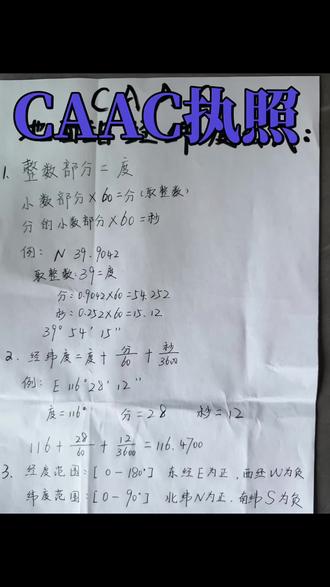 CAAC执照
1. 整数部分 = 度
小数部分×60=分(取整数)
分的小数部分×60=秒
例: N 39.9042
取整数:39=度
分:0.9042×60=54.252
秒:0.252×60=15.12
39° 54′ 15″
2. 经纬度=度+分/60+秒/3600
例: E 116°28′12″
度=116° 分=28 秒=12
116+28/60+12/3600=116.4700
3. 经度范围:[0-180°] 东经E为正,西经W为负
纬度范围:[0-90°] 北纬N为正.南纬S为负